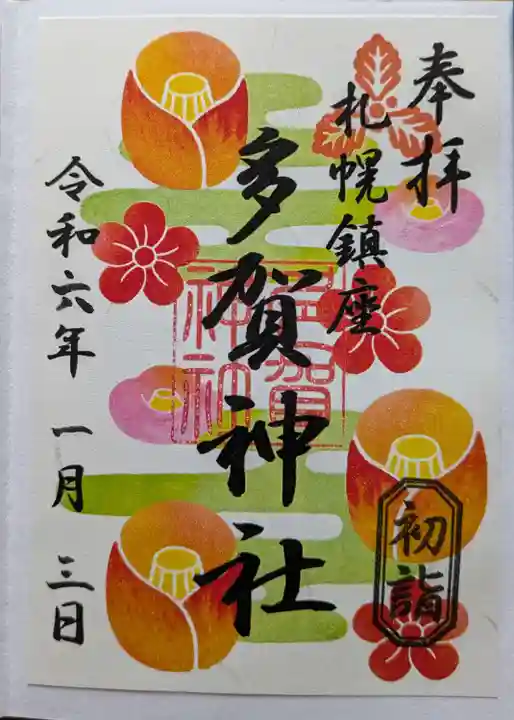 奉拝
札幌鎮座
多賀神社
多賀
神社
初詣
令和六年 一月 三日